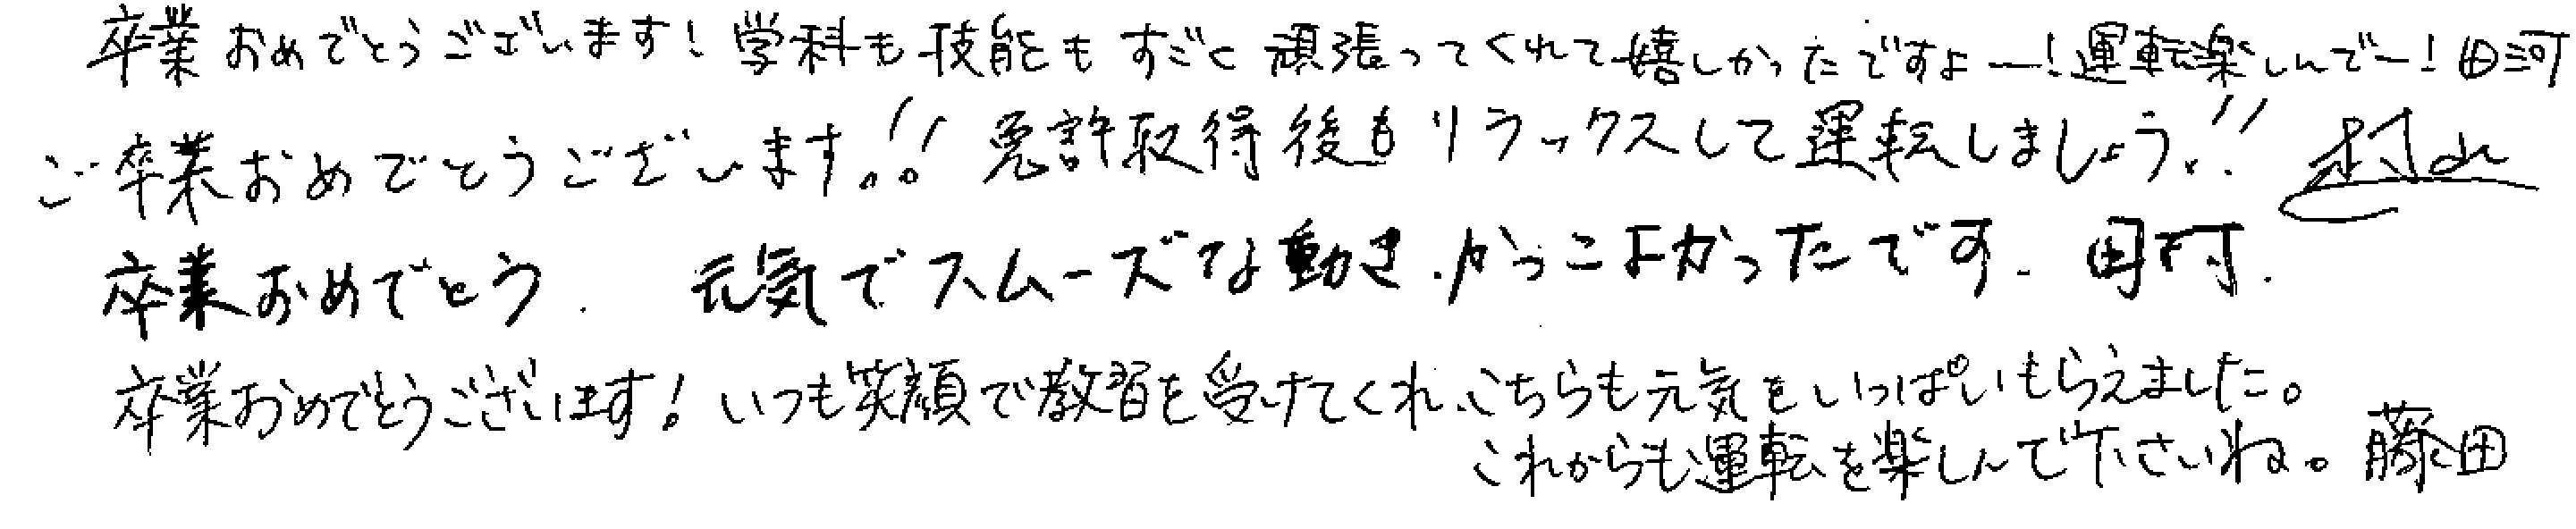 卒業おめでとうございます!学科も技能もすごく頑張ってくれて嬉しかったですよー!運転楽しんでー!田河
ご卒業おめでとうございます!!免許取得後もリラックスして運転しましょう!!村山
卒業おめでとう. 元気でスムーズな動き.かっこよかったです. 田村.
卒業おめでとうございます!いつも笑顔で教習を受けてくれ、こちらも元気をいっぱいもらえました。
これからも運転を楽しんで下さいね。藤田